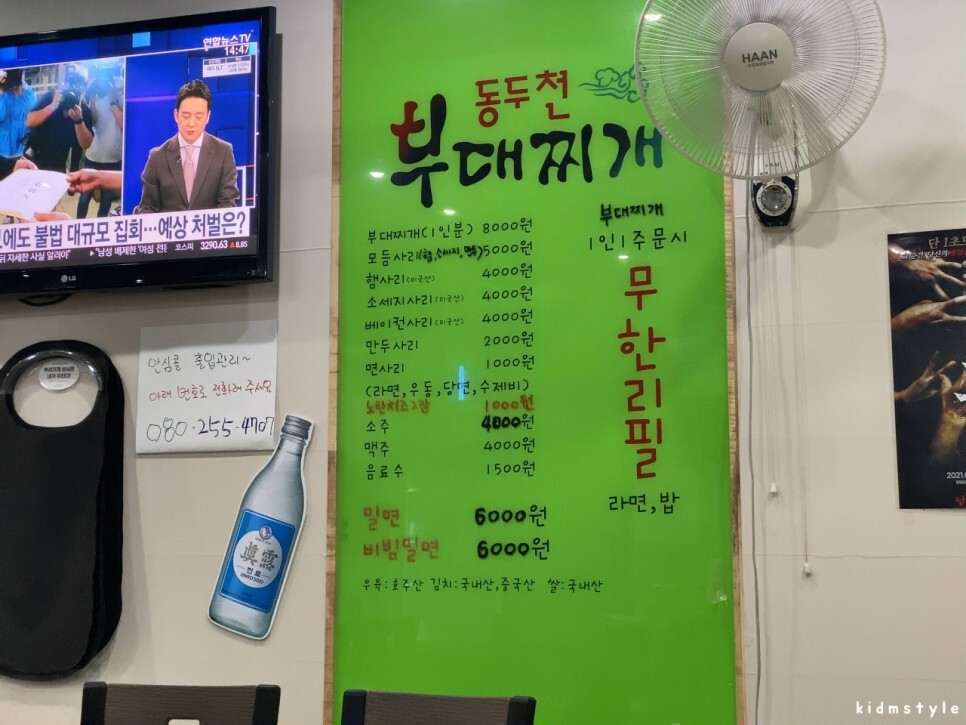 연합뉴스TV
14:47
에도 불법 대규모 집회…예상 처벌은?
뒤 자세한 사실 알려야"
▶"남성 배제한 '여성 전용
코스피 3290.63 ▲8.85
LG
안심콜 출입관리~
아래 번호로 전화해 주세요
080-255-4707
眞露
진로
동두천
부대찌개
부대찌개(1인분) 8000원
모듬사리(햄,소세지, 5000원
햄사리(미국산) 4000원
소세지사리(미국산) 4000원
베이컨사리(미국산) 4000원
만두사리 2000원
면사리 1000원
(라면,우동,당면,수제비)
노란치즈2장 1000원
소주 4000원
맥주 4000원
음료수 1500원
밀면 6000원
비빔밀면 6000원
우육:호주산 김치:국내산,중국산 쌀:국내산
부대찌개
1인1주문시
무한리필
라면,밥
HAAN
단 1초도
2021.
kidmstyle